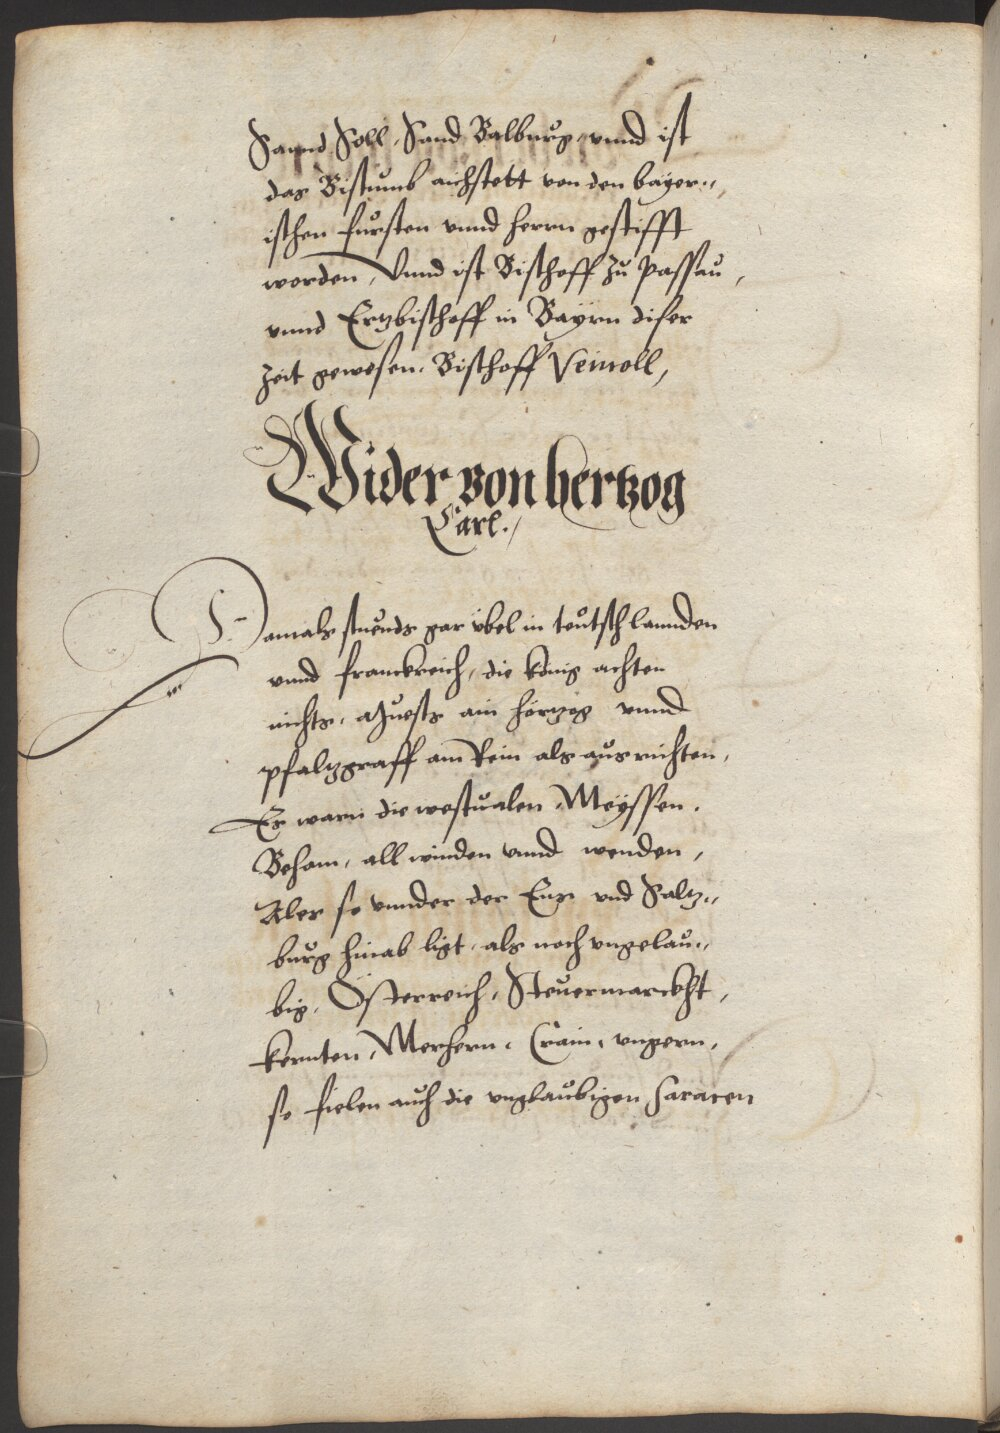 Sannd Soll, Sand Balburg, vnnd ist
das Bistumb aichstett von den bayer„
ischen fürsten vnnd herrn gestifft
worden, Vnnd ist Bischoff zu Passau,
vnnd Ertzbischoff in Bayrn diser
zeit gewesen. Bischoff Veiuoll,
Wider von hertzog
Carl.
Damals stuends gar übel in teutsch lannden
vnnd franckreich, die könig achten
nichts, muests ain hertzog vnnd
pfaltzgraff am Rein als ausrichten,
Es warn die westualen, Meyssen,
Beham, all winden vnnd wenden,
Aler so vnnder der Enns vnd Saltz„
burg hinab ligt, als noch vngelau„
big, Österreich, Steuermarckht,
kernten, Merhern, Crain, vngern,
so fielen auch die vnglaubigen Saracen